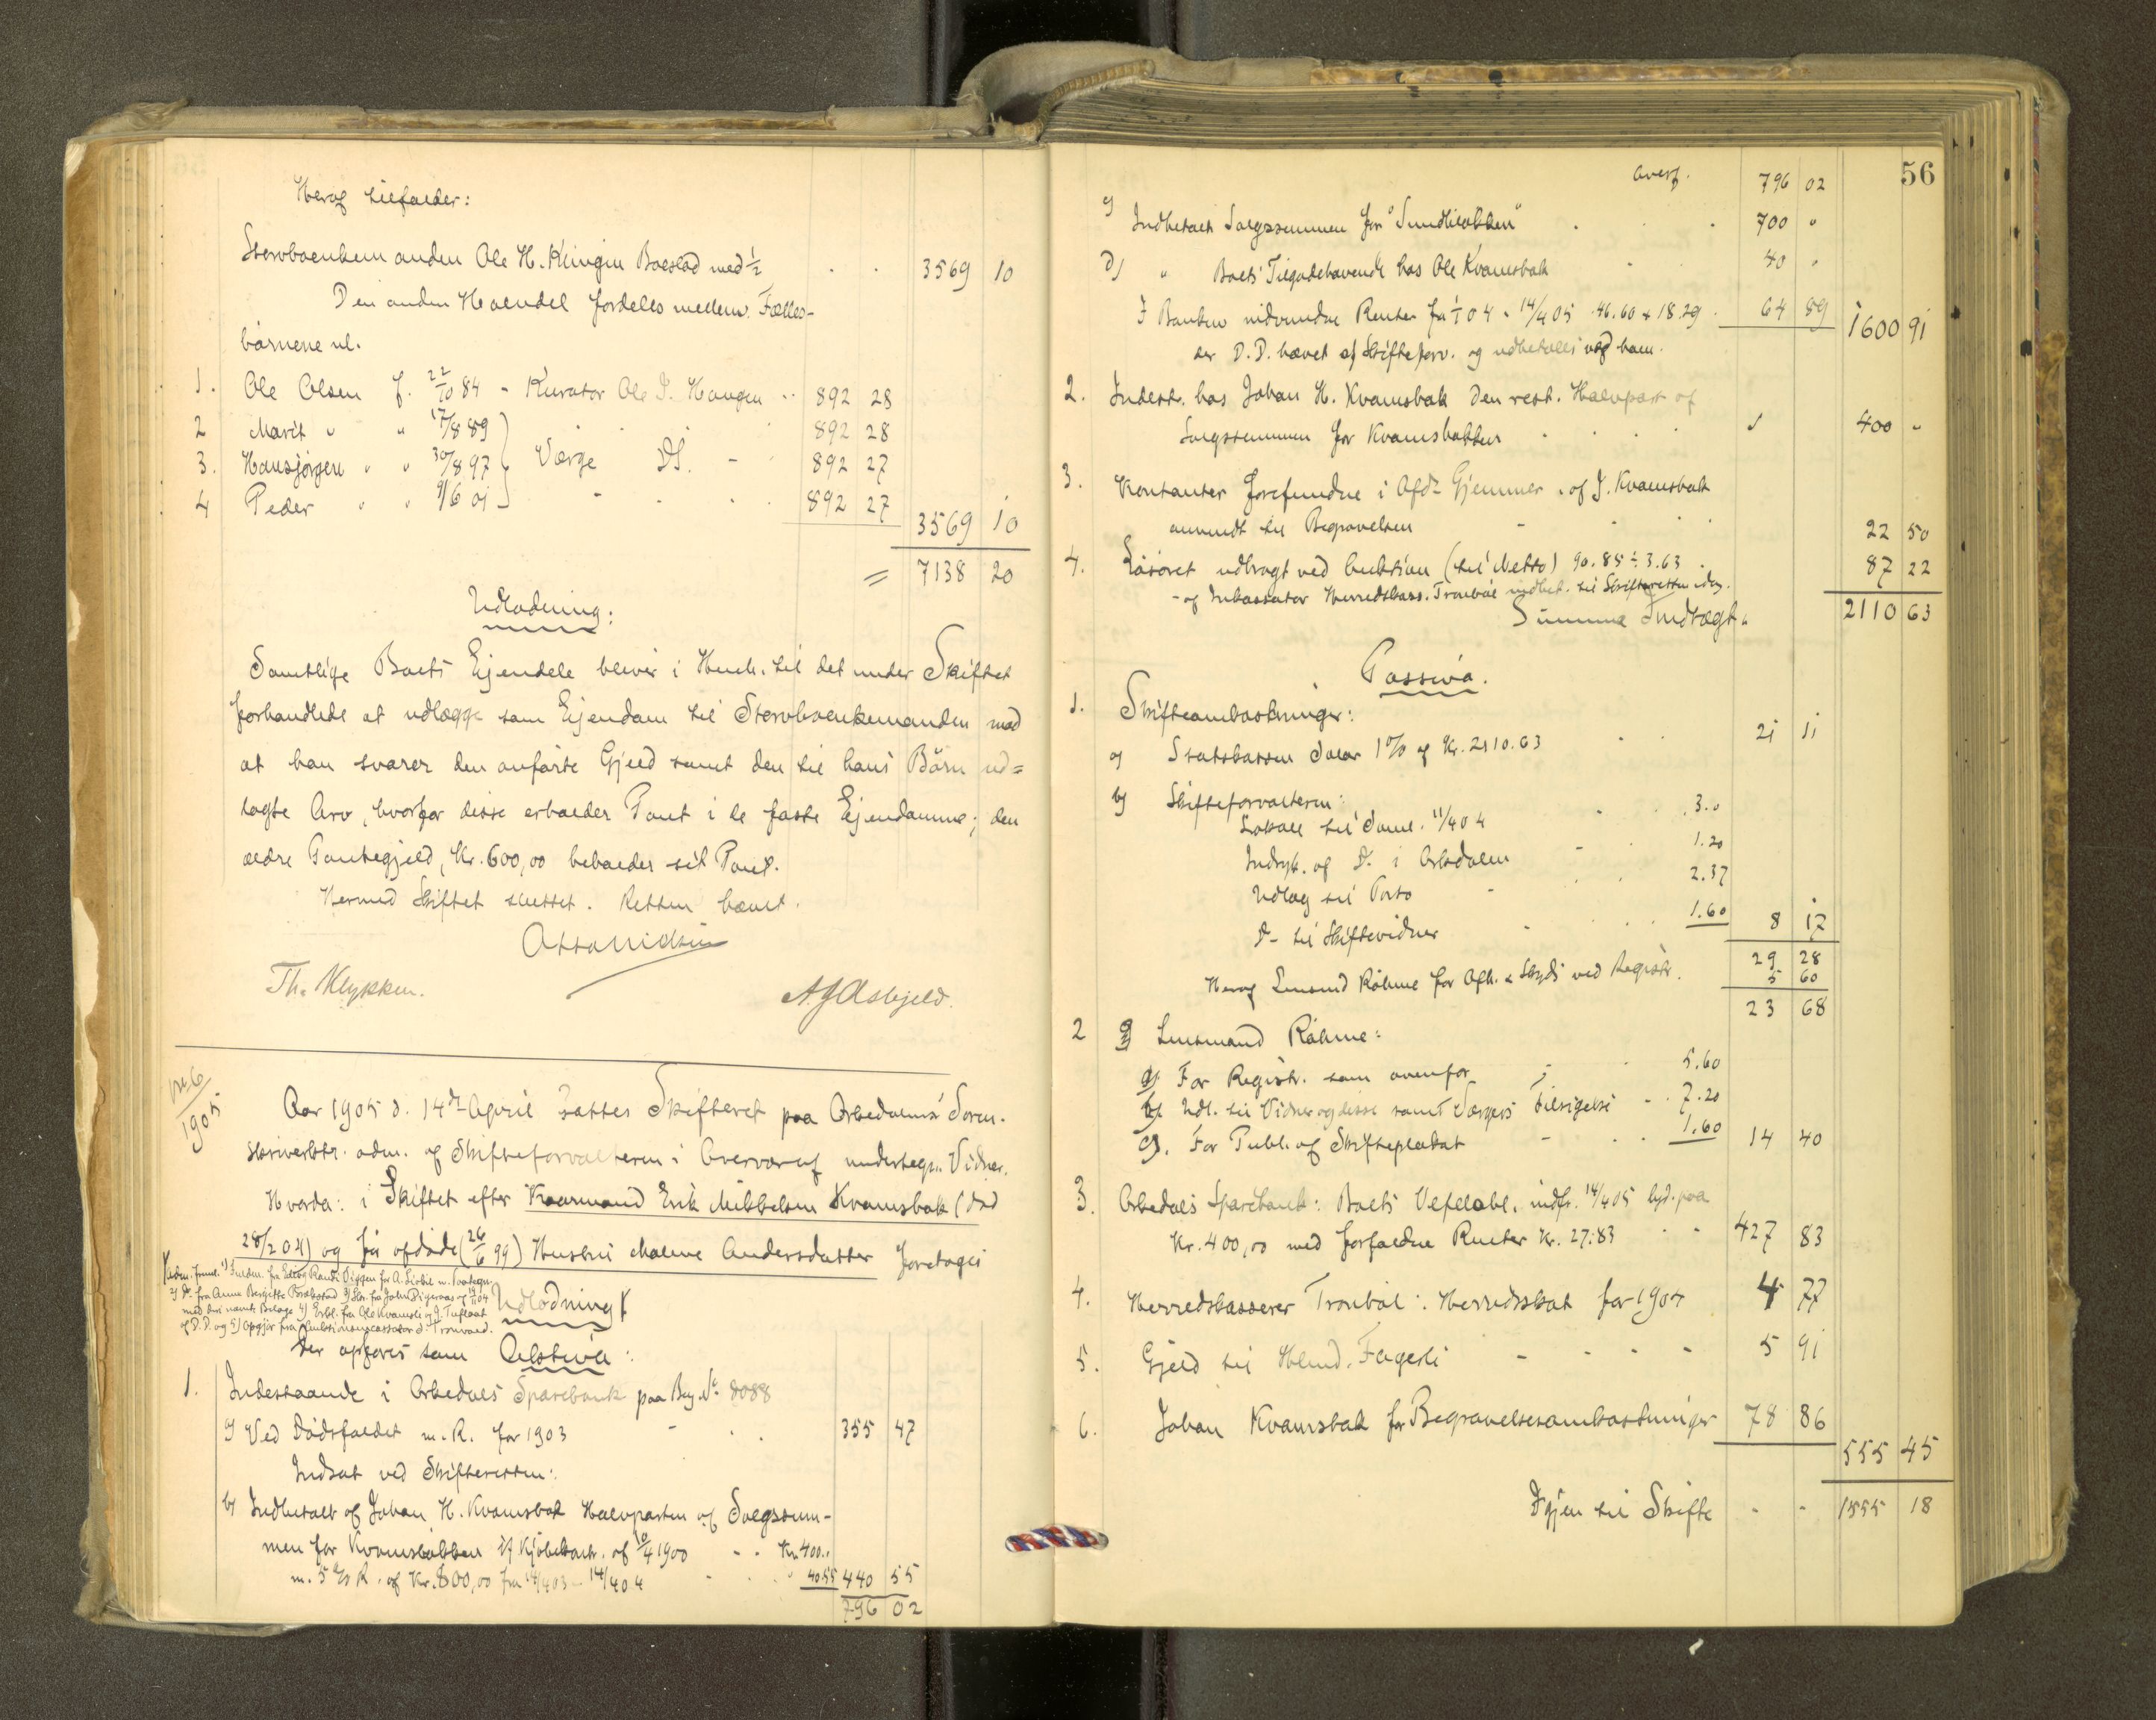 Heraf tilfalder:
Stervboenkemanden Ole H. Klingen Boeslod med ½ . . 3569 10
Den anden Halvdel fordeles mellem Fælles-
børnene nl.
1. Ole Olsen f. 22/10 84 - Kurator Ole J. Haugen .. 892 28
2 Marit " " 17/8 89 892 28
3. Hansjørgen " " 30/8 97 Værge DS. - 892 27
4 Peder " " 9/6 01 892 27
3569 10
= 7138 20
Udlodning:
Samtlige Boets Ejendele bliver i Henh. til det under Skiftet
forhandlede at udlægge som Ejendom til Stervboenkemanden mod
at han svarer den anførte Gjeld samt den til hans Børn ud=
lagte Arv, hvorfor disse erholder Pant i de faste Ejendomme; den
ældre Pantegjeld, Kr. 600,00 beholder sit Pant.
Hermed Skiftet sluttet. Retten hævet.
Th. Klykken.
A J Asbjeld.
No 6
1905
Aar 1905 d. 14de April sattes Skifteret paa Orkedalens Soren-
skriverktr. adm. af Skifteforvalteren i Overvær af undertegn. Vidner.
Hvorda: i Skiftet efter Kaarmand Erik Mikkelsen Kvamsbak (død
28/2 04) og før afdøde (26/6 99) Hustru Malene Andersdatter foretoges
Udlodning
Der opføres som Aktiva:
1. Indestaaende i Orkedals Sparebank paa Bog No 8088
a) Ved Dødsfaldet m. R. for 1903 - . . 355 47
Indsat ved Skifteretten:
b) Indbetalt af Johan H. Kvamsbak Halvparten af Salgssum-
men for Kvamsbakken i/f Kjøbekontr. af 10/4 1900 - . Kr. 400..
m. 5 % R. af Kr. 800,00 fra 14/4 03 - 14/4 04 40.55 440 55
796 02
56
Overf. 796 02
c) Indbetalt Salgssummen for "Sundliløkken" . . 700 "
d) " Boets Tilgodehavende hos Ole Kvamsbak 40 "
I Banken indvundne Renter fra 1/1 04 - 14/4 05 46.60 + 18.29 . 64 89 1600 91
der D.D. hævet af Skifteforv. og udbetales ved ham.
2. Indestr. hos Johan H. Kvamsbak den rest. Halvpart af
Salgssummen for Kvamsbakken . . . 400 "
3. Kontanter forefundne i Afdes Gjemmer, af J. Kvamsbak
anvendt til Begravelsen - . . 22 50
4. Løsøret udbragt ved Auktion (til Netto) 90.85 ÷ 3.63 . 87 22
- af Inkassator Herredskass. Tronvol indbet. til Skifteretten idag.
Summa Indtægt . 2110 63
Passiva.
1. Skifteomkostninger:
a) Statskassen Salær 1 % af Kr. 2110.63 . . 21 11
b) Skifteforvalteren:
Lokale til Saml. 11/4 04 . . 3.0
Indryk. af D. i Orkdølen - . 1.20
Udlæg til Porto - . . 2.37
D- til Skiftevidner - . . 1.60 8 17
29 28
Heraf Lensmand Røhme for Afh. & Skyds ved Registr. 5 60
23 68
2 Lensmand Røhme:
a) For Registr. som ovenfor . 5.60
b) Udl. til Vidner og disse samt Værgers Tilsigelse - . 7.20
c). For Publ. af Skifteplakat - . . 1.60 14 40
3. Orkedals Sparebank: Boets Vexelobl. indfr. 14/4 05 lyd. paa
Kr. 400,00 med forfaldne Renter Kr. 27:83 . . 427 83
4. Herredskasserer Tronvol: Herredsskat for 1904 4 77
5. Gjeld til Hlmd. Fagerli - - - - 5 91
6. Johan Kvamsbak for Begravelsesomkostninger 78 86
555 45
Igjen til Skifte - - 1555 18